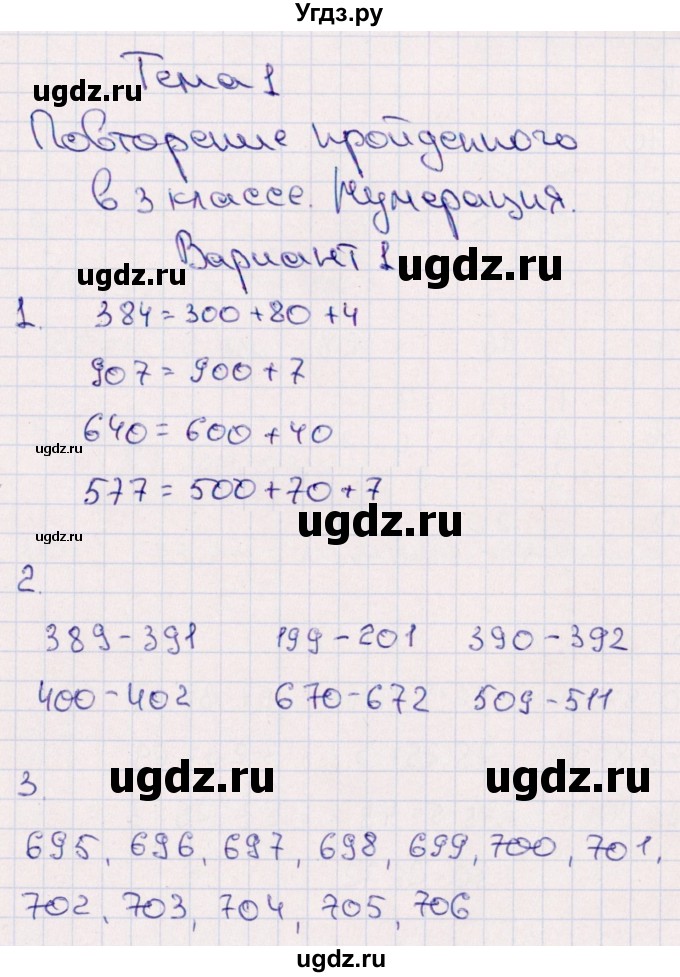 Угдз.ру
Тема 1
ugdz.ru
Повторение пройденного
в 3 классе. Нумерация.
Вариант 1
ugdz.ru
ugdz.ru
1. 384 = 300 + 80 + 4
907 = 900 + 7
640 = 600 + 40
ugdz.ru
577 = 500 + 70 + 7
ugdz.ru
ugdz.ru
2.
389 - 391 199 - 201 390 - 392
400 - 402 670 - 672 509 - 511
ugdz.ru ugdz.ru
3.
695, 696, 697, 698, 699, 700, 701,
702, 703, 704, 705, 706
ugdz.ru